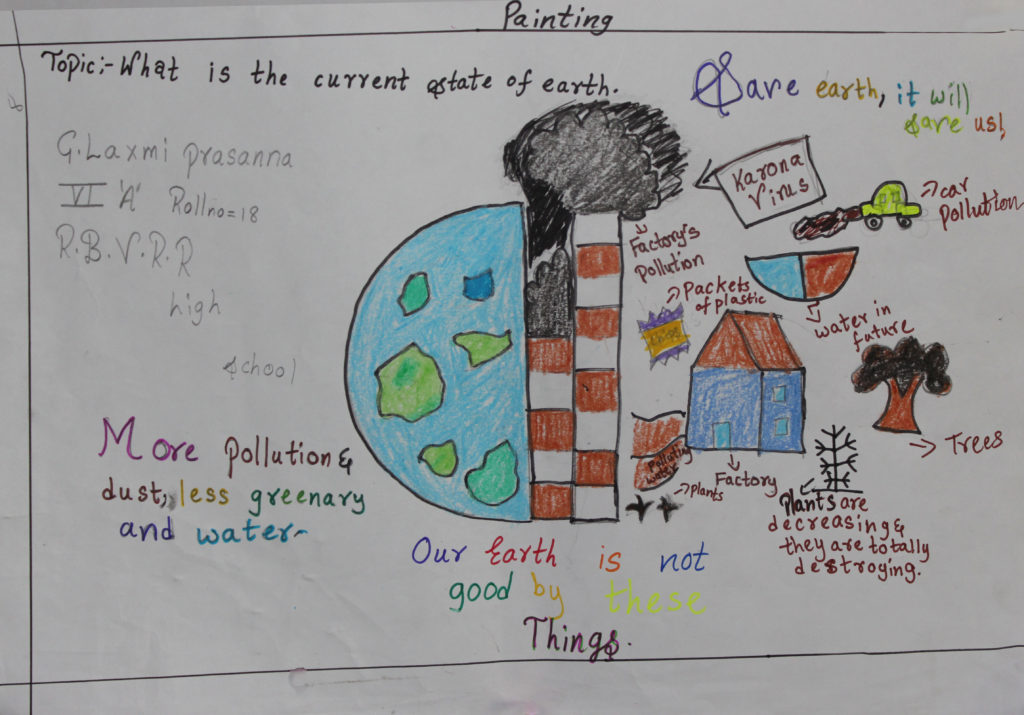 Painting
Topic:- What is the current state of earth.
Save earth, it will
save us!
G. Laxmi prasanna
VI 'A' Rollno=18
R.B.V.R.R
high
school
Karona
Virus
car
pollution
Factory's
pollution
Packets
of plastic
chips
water in
future
Trees
polluting
water
plants
Factory
Plants are
decreasing &
they are totally
destroying.
More pollution &
dust, less greenary
and water-
Our Earth is not
good by these
Things.